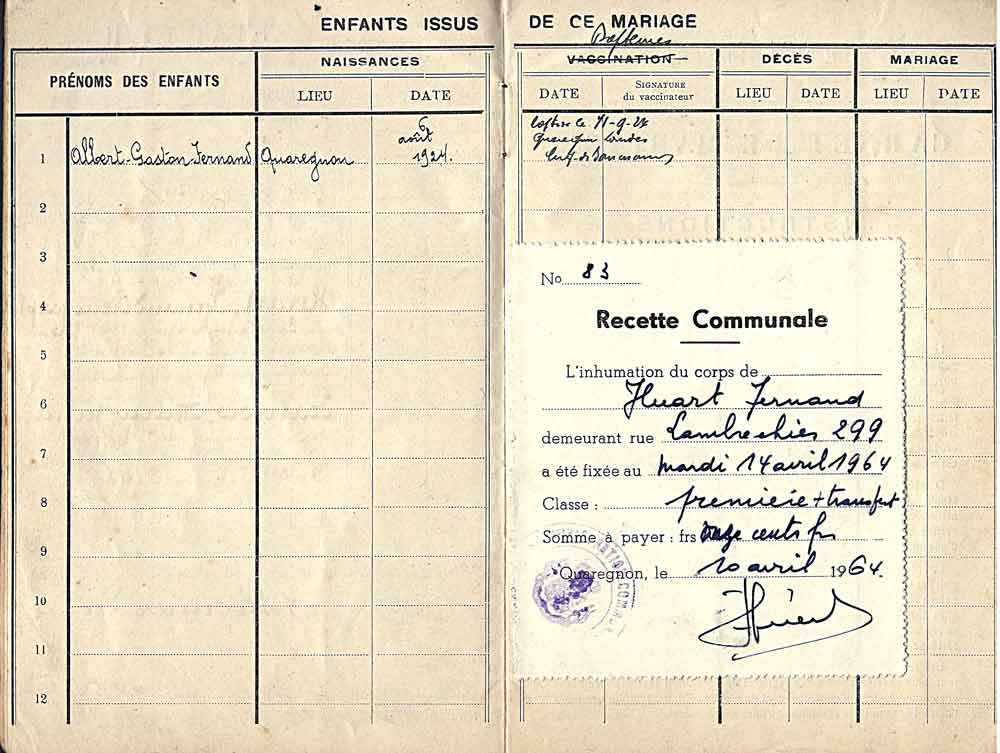 ENFANTS ISSUS DE CE MARIAGE
PRÉNOMS DES ENFANTS
NAISSANCES
LIEU
DATE
1 Albert-Gaston-Fernand Quaregnon 6 août 1924.
2
3
4
5
6
7
8
9
10
11
12
VACCINATION
DATE
SIGNATURE
du vaccinateur
DÉCÈS
LIEU
DATE
MARIAGE
LIEU
DATE
No 83
Recette Communale
L'inhumation du corps de
Huart Fernand
demeurant rue Lambrechies 299
a été fixée au mardi 14 avril 1964
Classe : première + transfert
Somme à payer : frs cents frs
Quaregnon, le 10 avril 1964.